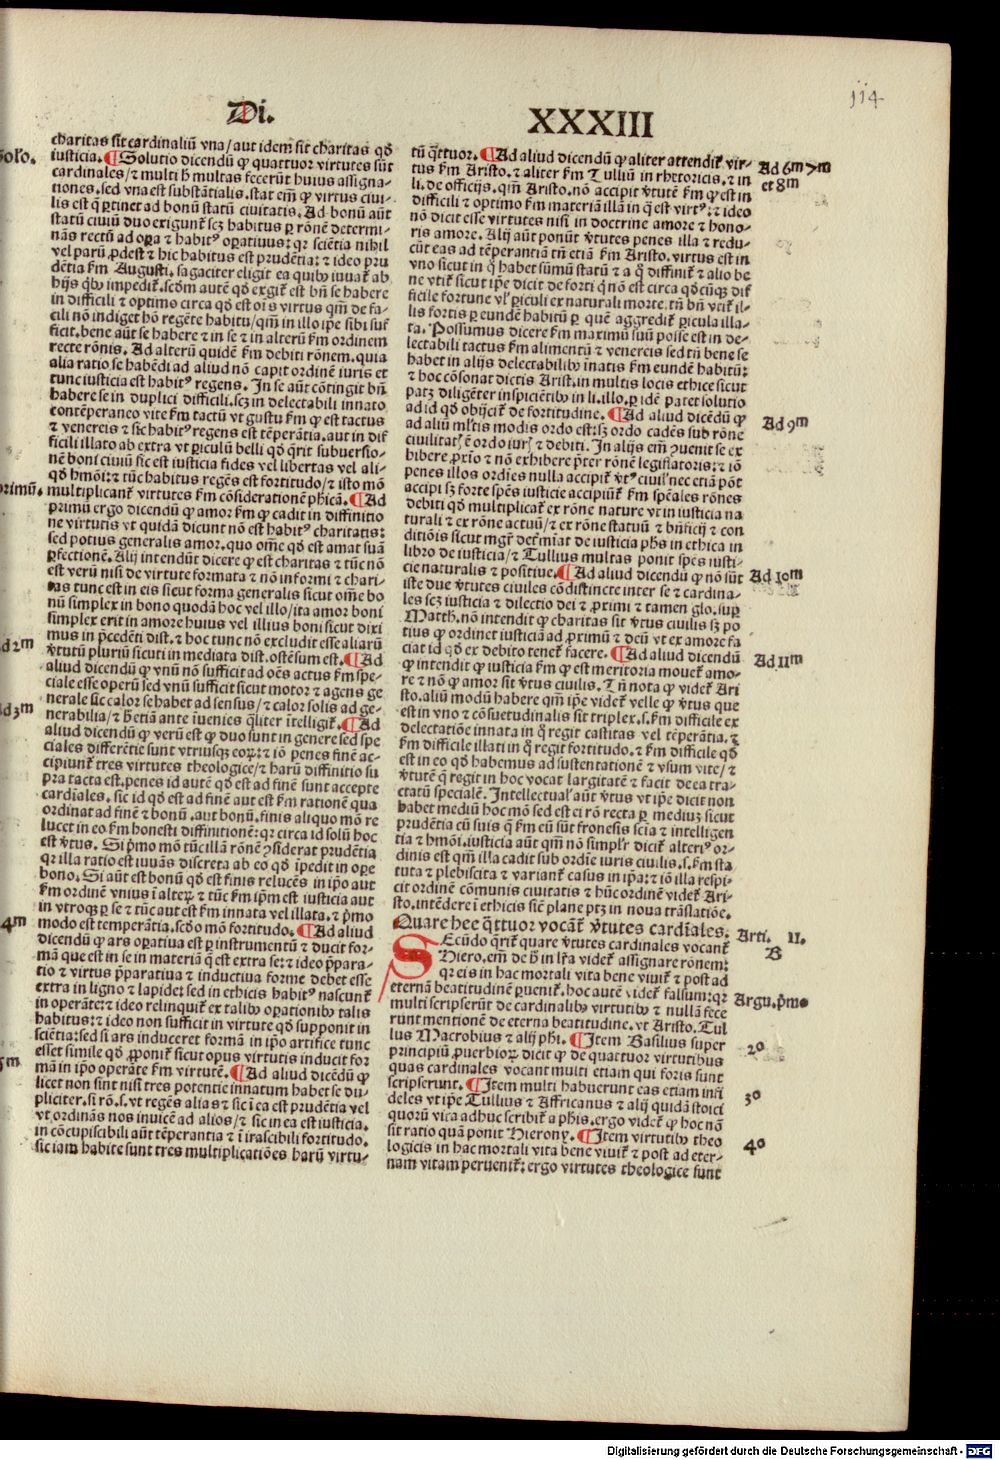 Di.
XXXIII
114
charitas sit cardinaliū vna/aut idem̄ sit charitas qđ
Solo.
iusticia. ¶Solutio dicendū ꝙ quattuor virtutes sūt
cardinales/⁊ multi h̄ multas fecerūt huius assigna-
tiones.sed vna est substātialis.stat em̄ ꝙ virtus ciui-
lis est q̄ ꝑtinet ad bonū statū ciuitatis. Ad bonū aūt
statū ciuiū duo exigunt̄ scꝫ habitus ꝑ rōnē determi-
nās rectū ad oꝑa ⁊ habitꝰ oꝑatiuus: qꝛ sciētia nihil
vel parū ꝓdest ⁊ hic habitus est prudētia: ⁊ ideo pru
dētia ẜm Augusti. sagaciter eligit ea quibꝰ iuuat̄ ab
hijs qͥbꝰ impedit̄. scďm autē qđ exigit̄ est bn̄ se habere
in difficili ⁊ optimo circa qđ est oīs virtus qm̄ de fa-
cili nō indiget hō regēte habitu/qm̄ in illo ipse sibi suf
ficit. bene aūt se habere ⁊ in se ⁊ in alterū ẜm ordinem
recte rōnis. Ad alterū quidē ẜm debiti rōnem. quia
alia ratio se habēdi ad aliud nō capit ordinē iuris et
tunc iusticia est habitꝰ regens. In se aūt cōtingit bn̄
habere se in duplici difficili. scꝫ in delectabili innato
contēperaneo vite ẜm tactū vt gustu ẜm ꝙ est tactus
⁊ venereis ⁊ sic habitꝰ regens est tēperātia. aut in dif
ficili illato ab extra vt ꝑiculū belli qđ q̄rit subuersio-
nē boni ciuiū sic est iusticia fides vel libertas vel ali-
qđ hmōi: ⁊ tūc habitus regēs est fortitudo/⁊ isto mō
primū.
multiplicant̄ virtutes ẜm cōsiderationē phīcā. ¶Ad
primū ergo dicendū ꝙ amor ẜm ꝙ cadit in diffinitio
ne virtutis vt quidā dicunt nō est habitꝰ charitatis:
sed potius generalis amor. quo om̄e qđ est amat suā
ꝑfectionē. Alij intendūt dicere ꝙ est charitas ⁊ tūc nō
est verū nisi de virtute formata ⁊ nō informi ⁊ chari-
tas tunc est in eis sicut forma generalis sicut om̄e bo
nū simplex in bono quodā hoc vel illo/ita amor boni
simplex erit in amore huius vel illius boni sicut dixi
mus in p̄cedēti dist. ⁊ hoc tunc nō excludit esse aliarū
Ad 2m
v̄tutū pluriū sicuti in mediata dist. ostēsum est. ¶Ad
aliud dicendū ꝙ vnū nō sufficit ad oēs actus ẜm spe-
ciale esse operū sed vnū sufficit sicut motor ⁊ agens ge
nerale sic calor se habet ad sensus/⁊ calor solis ad ge-
Ad 3m
nerabilia/⁊ h̄ etiā ante inuenies q̄liter intelligit̄. ¶Ad
aliud dicendū ꝙ verū est ꝙ duo sunt in genere sed spe
ciales differētie sunt vtriusqꝫ eoꝝ: ⁊ iō penes finē ac-
cipiunt̄ tres virtutes theologice/⁊ harū diffinitio su
pra tacta est. penes id autē qđ est ad finē sunt accepte
cardīales. sic id qđ est ad finē aut est ẜm rationē qua
ordinat ad finē ⁊ bonū .aut bonū. finis aliquo mō re
lucet in eo ẜm honesti diffinitionē: qꝛ circa id solū hoc
est v̄tus. Si p̄mo mō tūc illā rōnē ꝯsiderat prudētia
qꝛ illa ratio est iuuās discreta ab eo qđ īpedit in oꝑe
bono. Si aūt est bonū qđ est finis relucēs in ip̄o aut
ẜm ordinē vnius ī alteꝝ ⁊ tūc ẜm ip̄m est iusticia aut
in vtroqꝫ ꝑ se ⁊ tūc aut est ẜm innata vel illata. ⁊ p̄mo
4m
modo est temperātia. scďo mō fortitudo. ¶Ad aliud
dicendū ꝙ ars oꝑatiua est ꝑ instrumentū ⁊ ducit for-
mā que est in se in materiā q̄ est extra se: ⁊ ideo p̄para-
tio ⁊ virtus p̄paratiua ⁊ inductiua forme debet esse
extra in ligno ⁊ lapide: sed in ethicis habitꝰ nascunt̄
in operāte: ⁊ ideo relinquit̄ ex talibꝰ oꝑationibꝰ talis
habitus: ⁊ ideo non sufficit in virtute qđ supponit in
sciētia: sed si ars induceret formā in ip̄o artifice tunc
5m
esset simile qđ ꝓponit̄ sicut opus virtutis inducit for
mā in ip̄o operāte ẜm virtutē. ¶Ad aliud dicēdū ꝙ
licet non sint nisi tres potentie innatum habet se du-
pliciter. si rō. s. vt regēs alias ⁊ sic ī ea est prudētia vel
vt ordinās nos inuicē ad alios/⁊ sic in ea est iusticia.
in cōcupiscibili aūt tēperantia ⁊ ī irascibili fortitudo.
sic iam habite sunt tres multiplicatiōes harū virtu-
tū q̄ttuor. ¶Ad aliud dicendū ꝙ aliter attendit̄ vir-
Ad 6m 7m
et 8m
tus ẜm Aristo. ⁊ aliter ẜm Tulliū in rhetoricis. ⁊ in
li. de officijs. qm̄ Aristo. nō accipit v̄tutē ẜm ꝙ est in
difficili ⁊ optimo ẜm materiā illā in q̄ est virtꝰ: ⁊ ideo
nō dicit esse virtutes nisi in doctrine amore ⁊ hono-
ris amore. Alij aūt ponūt v̄tutes penes illa ⁊ redu-
cūt eas ad tēperantiā tn̄ etiā ẜm Aristo. virtus est in
vno sicut in q̄ habet sūmū statū ⁊ a q̄ diffinit̄ ⁊ alio be
ne vtit̄ sicut ip̄e dicit de forti q̄ nō est circa qđcūqꝫ dif
ficile fortune vel ꝑiculi ex naturali morte. tn̄ bn̄ vtit̄ il-
lis fortis ꝑ eundē habitū ꝑ quē aggredit̄ ꝑicula illa-
ta. Possumus dicere ẜm maximū suū posse est in de-
lectabili tactus ẜm alimentū ⁊ venereis sed tn̄ bene se
habet in alijs delectabilibꝰ īnatis ẜm eundē habitū:
⁊ hoc cōsonat dictis Arist. in multis locis ethice sicut
patꝫ diligēter inspiciētibꝰ in li. illo. ꝑ idē patet solutio
Ad 9m
ad id qđ obijcit̄ de fortitudine. ¶Ad aliud dicēdū ꝙ
ad aliū ml̄tis modis ordo est: sꝫ ordo cadēs sub rōne
ciuilitatꝭ ē ordo iurꝭ ⁊ debiti. In alijs em̄ ꝯuenit se ex
hibere ꝓxīo ⁊ nō exhibere p̄ter rōnē legislatoris: ⁊ iō
penes illos ordīes nulla accipit̄ v̄tꝰ ciuilꝰ nec etiā pōt
accipi sꝫ forte spēs iusticie accipiūt̄ ẜm spēales rōnes
debiti qđ multiplicat̄ ex rōne nature vt in iusticia na
turali ⁊ ex rōne actuū/⁊ ex rōne statuū ⁊ bn̄ficij ⁊ con
ditiōis sicut mgr̄ determīat de iusticia phs in ethica in
libro de iusticia/⁊ Tullius multas ponit spēs iusti-
Ad 10m
cie naturalis ⁊ positiue. ¶Ad aliud dicendū ꝙ nō sūt
iste due v̄tutes ciuiles cōdistincte inter se ⁊ cardina-
les scꝫ iusticia ⁊ dilectio dei ⁊ ꝓximi ⁊ tamen glo. suꝑ
Matth. nō intendit ꝙ charitas sit v̄tus ciuilis sꝫ po
tius ꝙ ordinet iusticiā ad ꝓximū ⁊ deū vt ex amore fa
Ad 11m
ciat id qđ ex debito tenet̄ facere. ¶Ad aliud dicendū
ꝙ intendit ꝙ iusticia ẜm ꝙ est meritoria mouet̄ amo-
re ⁊ nō ꝙ amor sit v̄tus ciuilis. Tn̄ nota ꝙ videt̄ Ari
sto. aliū modū habere qm̄ ip̄e videt̄ velle ꝙ v̄tus que
est in vno ⁊ cōsuetudinalis sit triplex. s. ẜm difficile ex
delectatiōe innata in q̄ regit castitas vel tēperātia. ⁊
ẜm difficile illati in q̄ regit fortitudo. ⁊ ẜm difficile qđ
est in eo qđ habemus ad sustentationē ⁊ vsum vite/⁊
v̄tutē q̄ regit in hoc vocat largitatē ⁊ facit de ea tra-
ctatū specialē. Intellectualꝭ aūt v̄tus vt ip̄e dicit non
habet mediū hoc mō sed est ei rō recta ꝑ mediuꝫ sicut
prudētia cū suis q̄ ẜm eū sūt fronesis sciā ⁊ intelligen
tia ⁊ hmōi. iusticia aūt qm̄ nō simplꝛ dicit̄ alteriꝰ or-
dinis est qm̄ illa cadit sub ordīe iuris ciuilis. s. ẜm sta
tuta ⁊ plebiscita ⁊ variant̄ casus in ip̄a: ⁊ iō illa respi-
cit ordinē cōmunis ciuitatis ⁊ hūc ordinē videt̄ Ari-
sto. intēdere ī ethicis sic̄ plane ptꝫ in noua trāslatiōe.
Quare hec q̄ttuor vocāt̄ v̄tutes cardīales.
Arti. II.
B
SEcūdo q̄rit̄ quare v̄tutes cardinales vocant̄
Hiero. em̄ de h̄ in lr̄a videt̄ assignare rōnem:
qꝛ eis in hac mortali vita bene viuit̄ ⁊ post ad
eternā beatitudinē ꝑuenit̄. hoc autē videt̄ falsum: qꝛ
Argu. p̄mo
multi scripserūt de cardinalibꝰ virtutibꝰ ⁊ nullā fece
runt mentionē de eterna beatitudine. vt Aristo. Tul
lus Macrobius ⁊ alij phi. ¶Item Basilius super
2o
principiū ꝓuerbioꝝ dicit ꝙ de quattuor virtutibus
quas cardinales vocant multi etiam qui foris sunt
scripserunt. ¶Item multi habuerunt eas etiam infi
3o
deles vt ip̄e Tullius ⁊ Affricanus ⁊ alij quidā stoici
quorū vita adhuc scribit̄ a phis. ergo videt̄ ꝙ hoc nō
sit ratio quā ponit Hierony. ¶Item virtutibꝰ theo
4o
logicis in hac mortali vita bene viuit̄ ⁊ post ad eter-
nam vitam peruenit̄: ergo virtutes theologice sunt
Digitalisierung gefördert durch die Deutsche Forschungsgemeinschaft - DFG